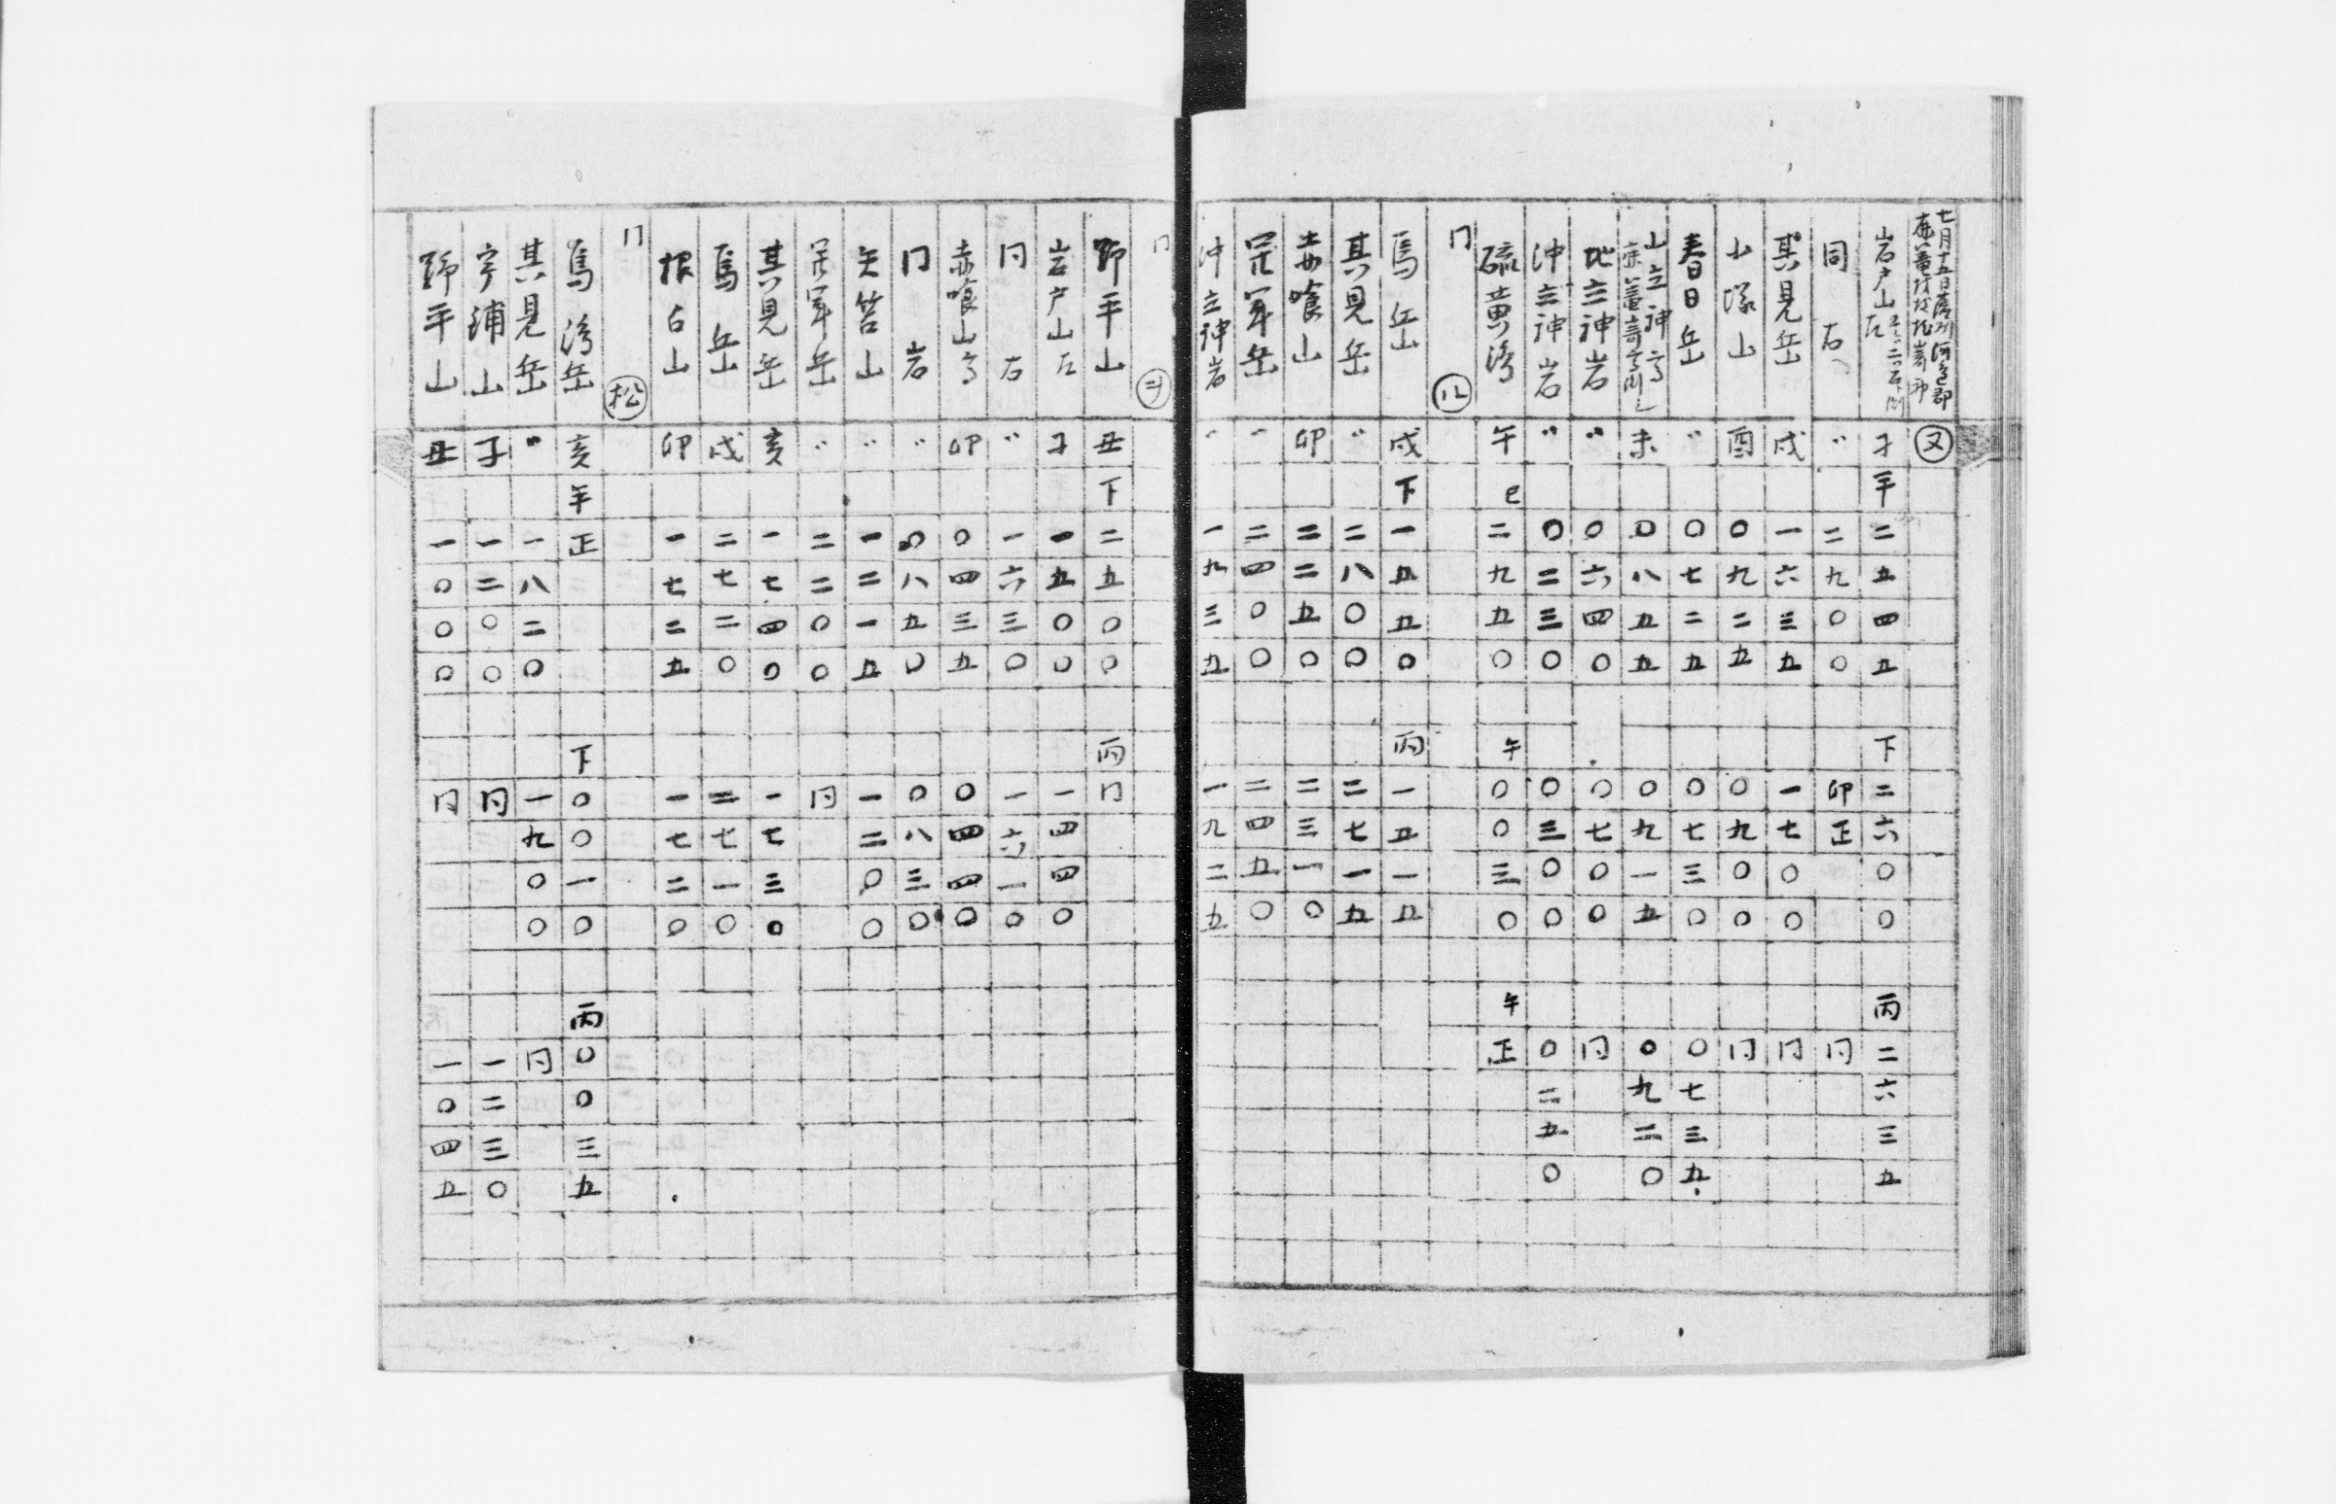 七月十五日
又
岩戸山左 子 平 二五四五 下 二六〇〇 丙 二六三五
同右 〃 二九〇〇 卯 正 同
其見岳 戌 一六三五 一七〇〇 同
小塚山 酉 〇九二五 〇九〇〇 同
春日岳 〃 〇七二五 〇七三〇 〇七三五
山立神 未 〇八五五 〇九一五 〇九二〇
地立神岩 〃 〇六四〇 〇七〇〇 同
沖立神岩 〃 〇二三〇 〇三〇〇 〇二五〇
硫黄 午 巳 二九五〇 午 〇〇三〇 午 正
同 ル
馬岳 戌 下 一五五〇 丙 一五一五
其見岳 〃 二八〇〇 二七一五
赤喰山 卯 二二五〇 二三一〇
冠軍岳 〃 二四〇〇 二四五〇
沖立神岩 〃 一九三五 一九二五
同 ヲ
野平山 丑 下 二五〇〇 丙 同
岩戸山左 子 一五〇〇 一四四〇
同右 〃 一六三〇 一六一〇
赤喰山 卯 〇四三五 〇四四〇
同岩 〃 〇八五〇 〇八三〇
矢筈山 〃 一二一五 一二〇〇
冠軍岳 〃 二二〇〇 同
其見岳 亥 一七四〇 一七三〇
馬岳 戌 二七二〇 二七一〇
根占山 卯 一七二五 一七二〇
同 松
亥 午 正 下 〇〇一〇 丙 〇〇三五
其見岳 〃 一八二〇 一九〇〇 同
宇浦山 子 一二〇〇 同 一二三〇
野平山 丑 一〇〇〇 同 一〇四五